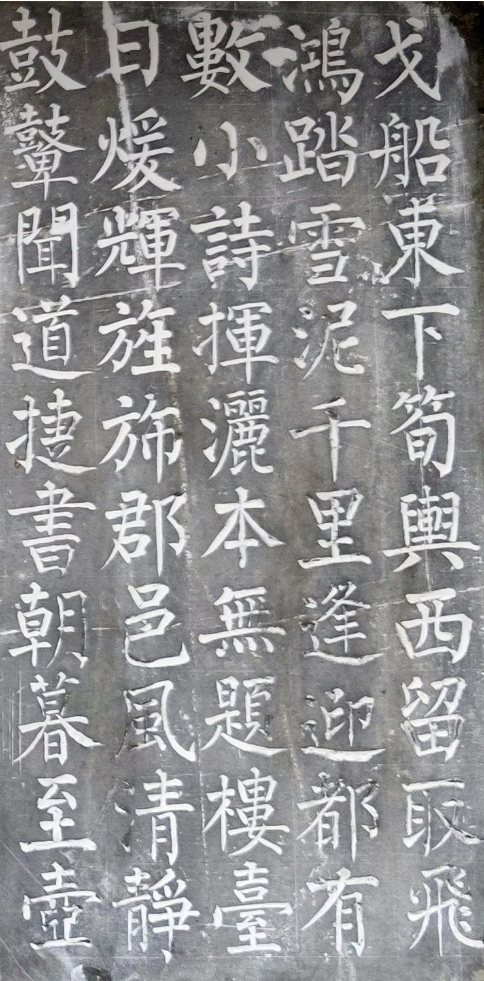 戈船東下筍輿西留取飛
鴻踏雪泥千里逢迎都有
數小詩揮灑本無題樓臺
日煖輝旌斾郡邑風清靜
鼓鼙聞道捷書朝暮至壺